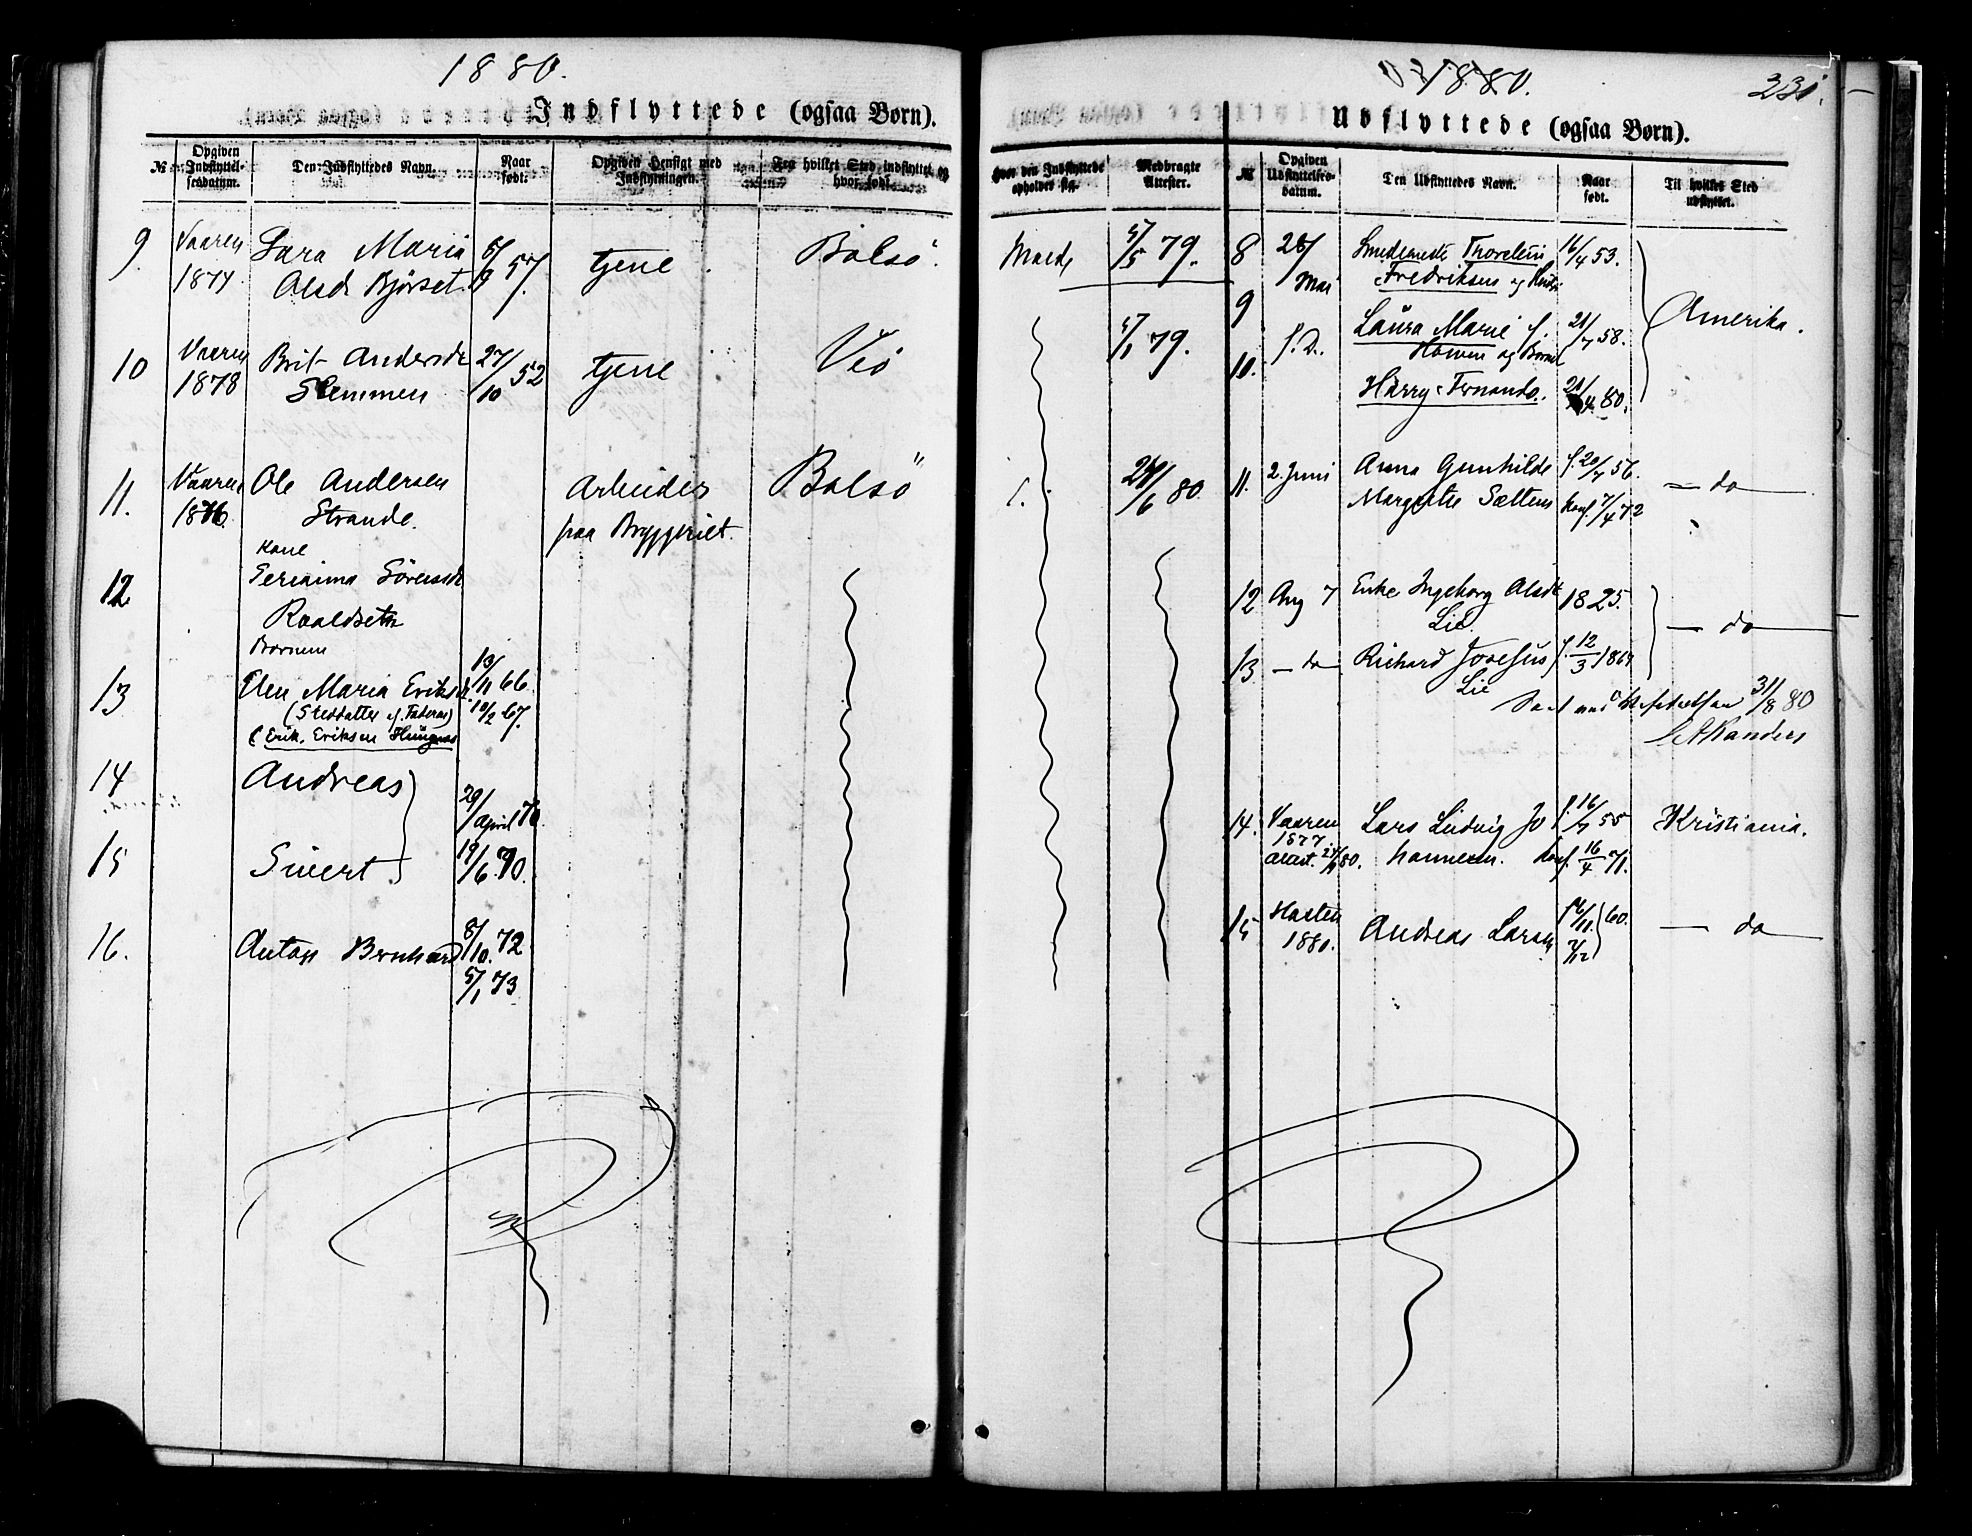 1880.
Indflyttede (ogsaa Børn).
№
Opgiven Indflyttelsesdatum.
Den Indflyttedes Navn.
Naar født.
Opgiven Hensigt med Indflytningen.
Fra hvilket Sted indflyttet og hvor født.
9. Vaaren Lara Maria 57 tjene Bolsø.
Olsdr Bjørset.
10 Vaaren Brit Andersdr 27/10 52 tjene Veø
1878 Slemmen
11. Vaaren Ole Andersen Arbeider Bolsø
Strande. paa Bryggeriet.
Kone
12 Sørensdr
Roaldseth
Børnene
13 Elen Maria Eriksd. 13/11 66
(Steddatter af Faderen) 10/2 67.
Erik Eriksen
14 Andreas 29/April 70.
15 Sivert. 19/6 70.
16. Anton Bernhard 8/10. 72
5/1 73
1880. 231.
Udflyttede (ogsaa Børn).
Hvor den Indflyttede opholder sig.
Medbragte Attester.
№
Opgiven Udflyttelsesdatum.
Den Udflyttedes Navn.
Naar født.
Til hvilket Sted udflyttet.
Molde 5/5 79. 8 28/Mai Thorstein 16/4 53.
Fredriksen og Hustru
9 Laura Marie f. 21/7 58. Amerika.
5/1 79. og Barnet
10. Harry Fernando. 80.
6 80. 11. 2. Juni Anna Gunhilde f. 20/7 56. — do —
Margrethe Sættem Konf. 7/4 72
12 Aug 7 Enke Ingeborg Olsdr 1825.
Lie. — do —
13 — do Richard Josefus f. 12/3 186
Lie
31/8 80
14. Vaaren Lars Ludvig Jo f. 16/7 55 Kristiania.
1877
Attest. 80. hannesen. Konf. 16/4 71.
15 Høsten Andreas Larsen 60. — do
1880.